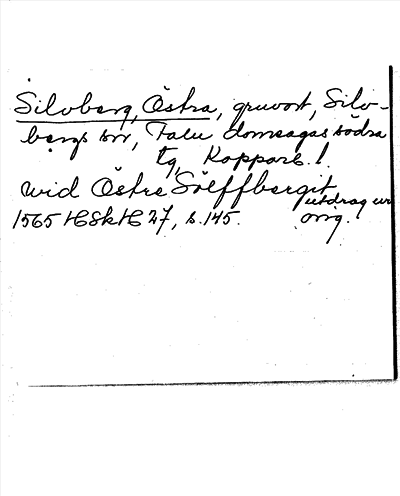 Silvberg, Östra, gruvort, Silv-
bergs sn, Falu domsagas södra
tg, Kopparb. l.
wid Östre Sölffbergit
1565 HSkH 27, s. 145. utdrag ur
orig.